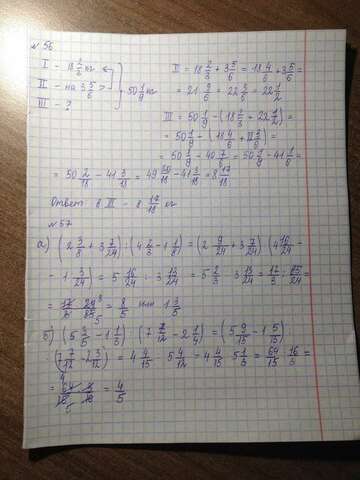 № 56
I - 18 2/3 кг
II - на 3 5/6 >
III - ?
50 1/9 кг
II = 18 2/3 + 3 5/6 = 18 4/6 + 3 5/6 =
= 21 9/6 = 22 3/6 = 22 1/2
III = 50 1/9 - (18 2/3 + 22 1/2) =
= 50 1/9 - (18 4/6 + 22 3/6) =
= 50 1/9 - 40 7/6 = 50 1/9 - 41 1/6 =
= 50 2/18 - 41 3/18 = 49 20/18 - 41 3/18 = 8 17/18
Ответ в III - 8 17/18 кг
№ 57
а) (2 3/8 + 3 7/24) : (4 2/3 - 1 1/8) = (2 9/24 + 3 7/24) (4 16/24 -
- 1 3/24) = 5 16/24 : 3 13/24 = 5 2/3 3 13/24 = 17/3 : 85/24 =
= 17/3 24/85 = 8/5 или 1 3/5
б) (5 3/5 - 1 1/3) (7 7/12 - 2 1/4) = (5 9/15 - 1 5/15)
: (7 7/12 - 2 3/12) = 4 4/15 5 4/12 = 4 4/15 5 1/3 = 64/15 16/3 =
= 64 · 3/15 · 16 = 4/5